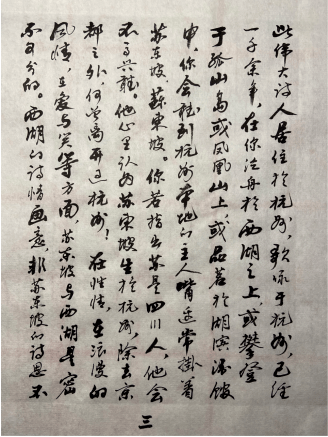 此伟大诗人居住於杭州，歌咏于杭州，已经
一千余年，在你泛舟於西湖之上，或攀登
于孤山岛或凤凰山上，或品茗於湖滨酒馆
中，你会听到杭州本地的主人嘴边常挂着
苏东坡，苏东坡。你若指出苏是四川人，他会
不高兴听。他心里认为苏东坡生於杭州，除去京
都之外，何曾离开过杭州！在性情，在浪漫的
风情，在爱与笑等方面，苏东坡与西湖是密
不可分的。西湖的诗情画意，非苏东坡的诗思不
三